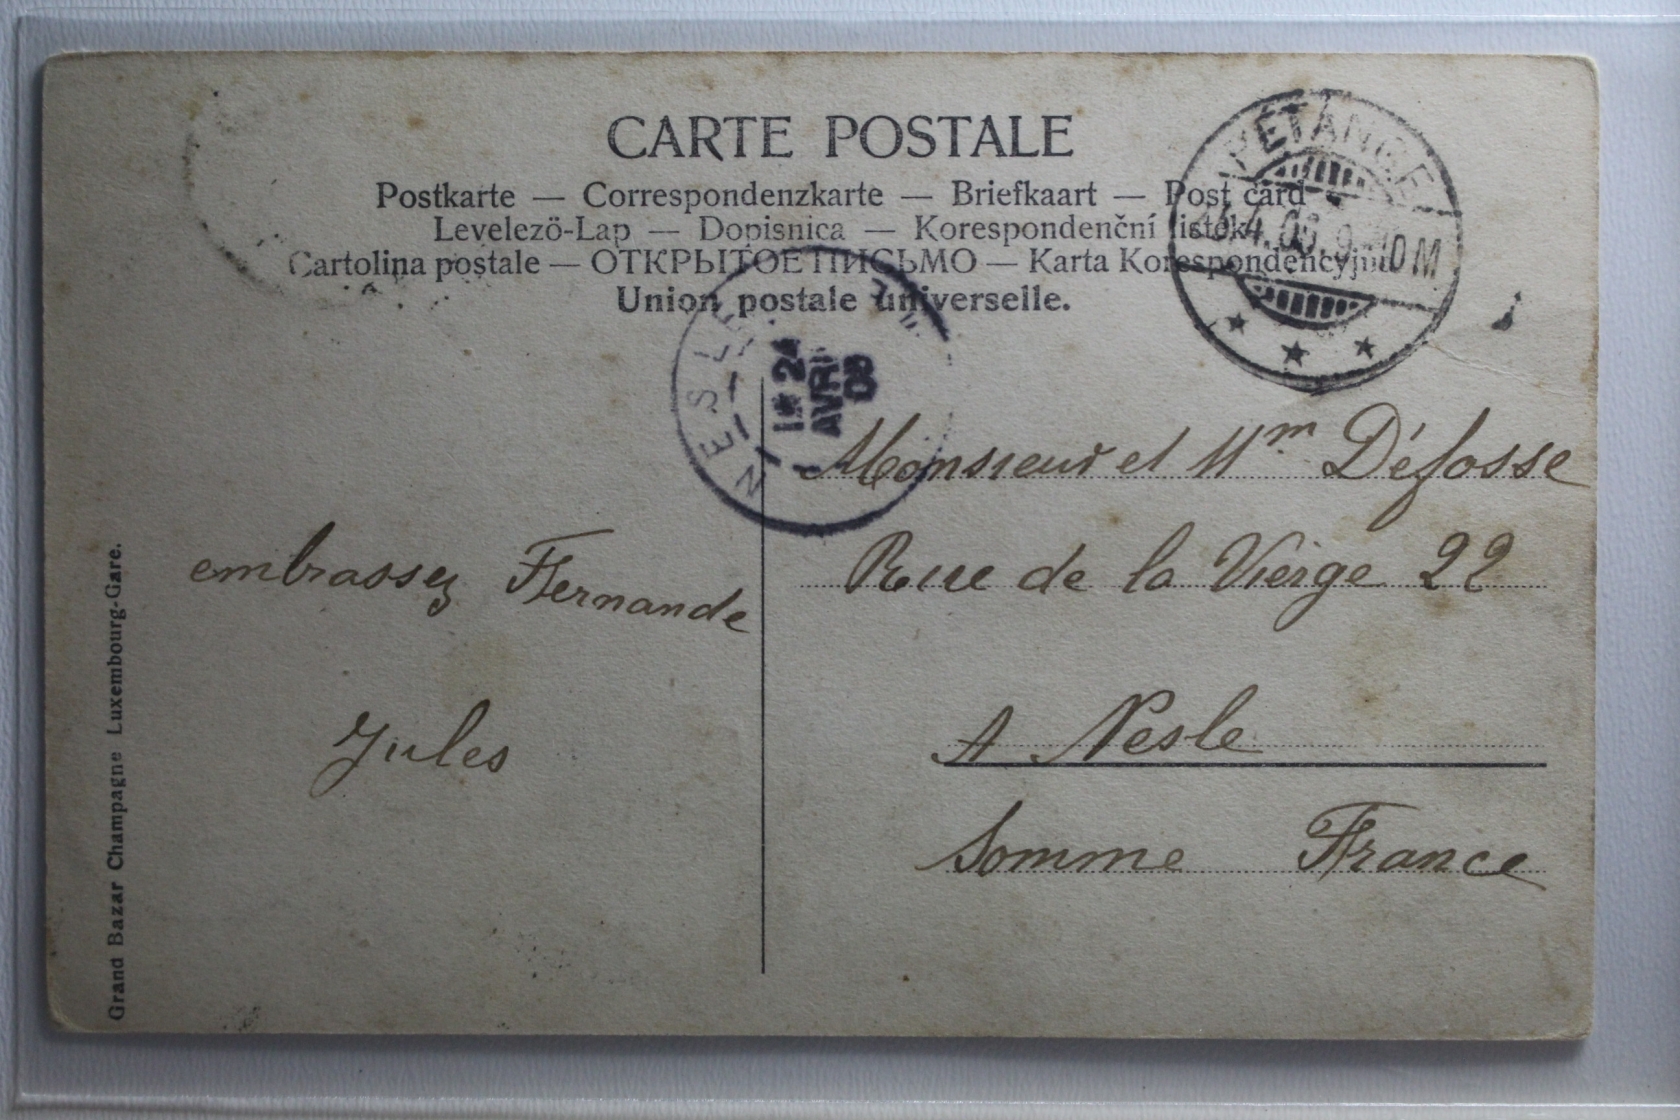 CARTE POSTALE
Postkarte — Correspondenzkarte — Briefkaart — Post card
Levelezö-Lap — Dopisnica — Korespondenční listek
Cartolina postale — ОТКРЫТОЕ ПИСЬМО — Karta Korespondencyjna
Union postale universelle.
PÉTANGE
NESLE
1* 24
AVRIL
08
Monsieur et Mm Défosse
Rue de la Vierge 22
A Nesle
Somme France
embrassez Fernande
Jules
Grand Bazar Champagne Luxembourg-Gare.